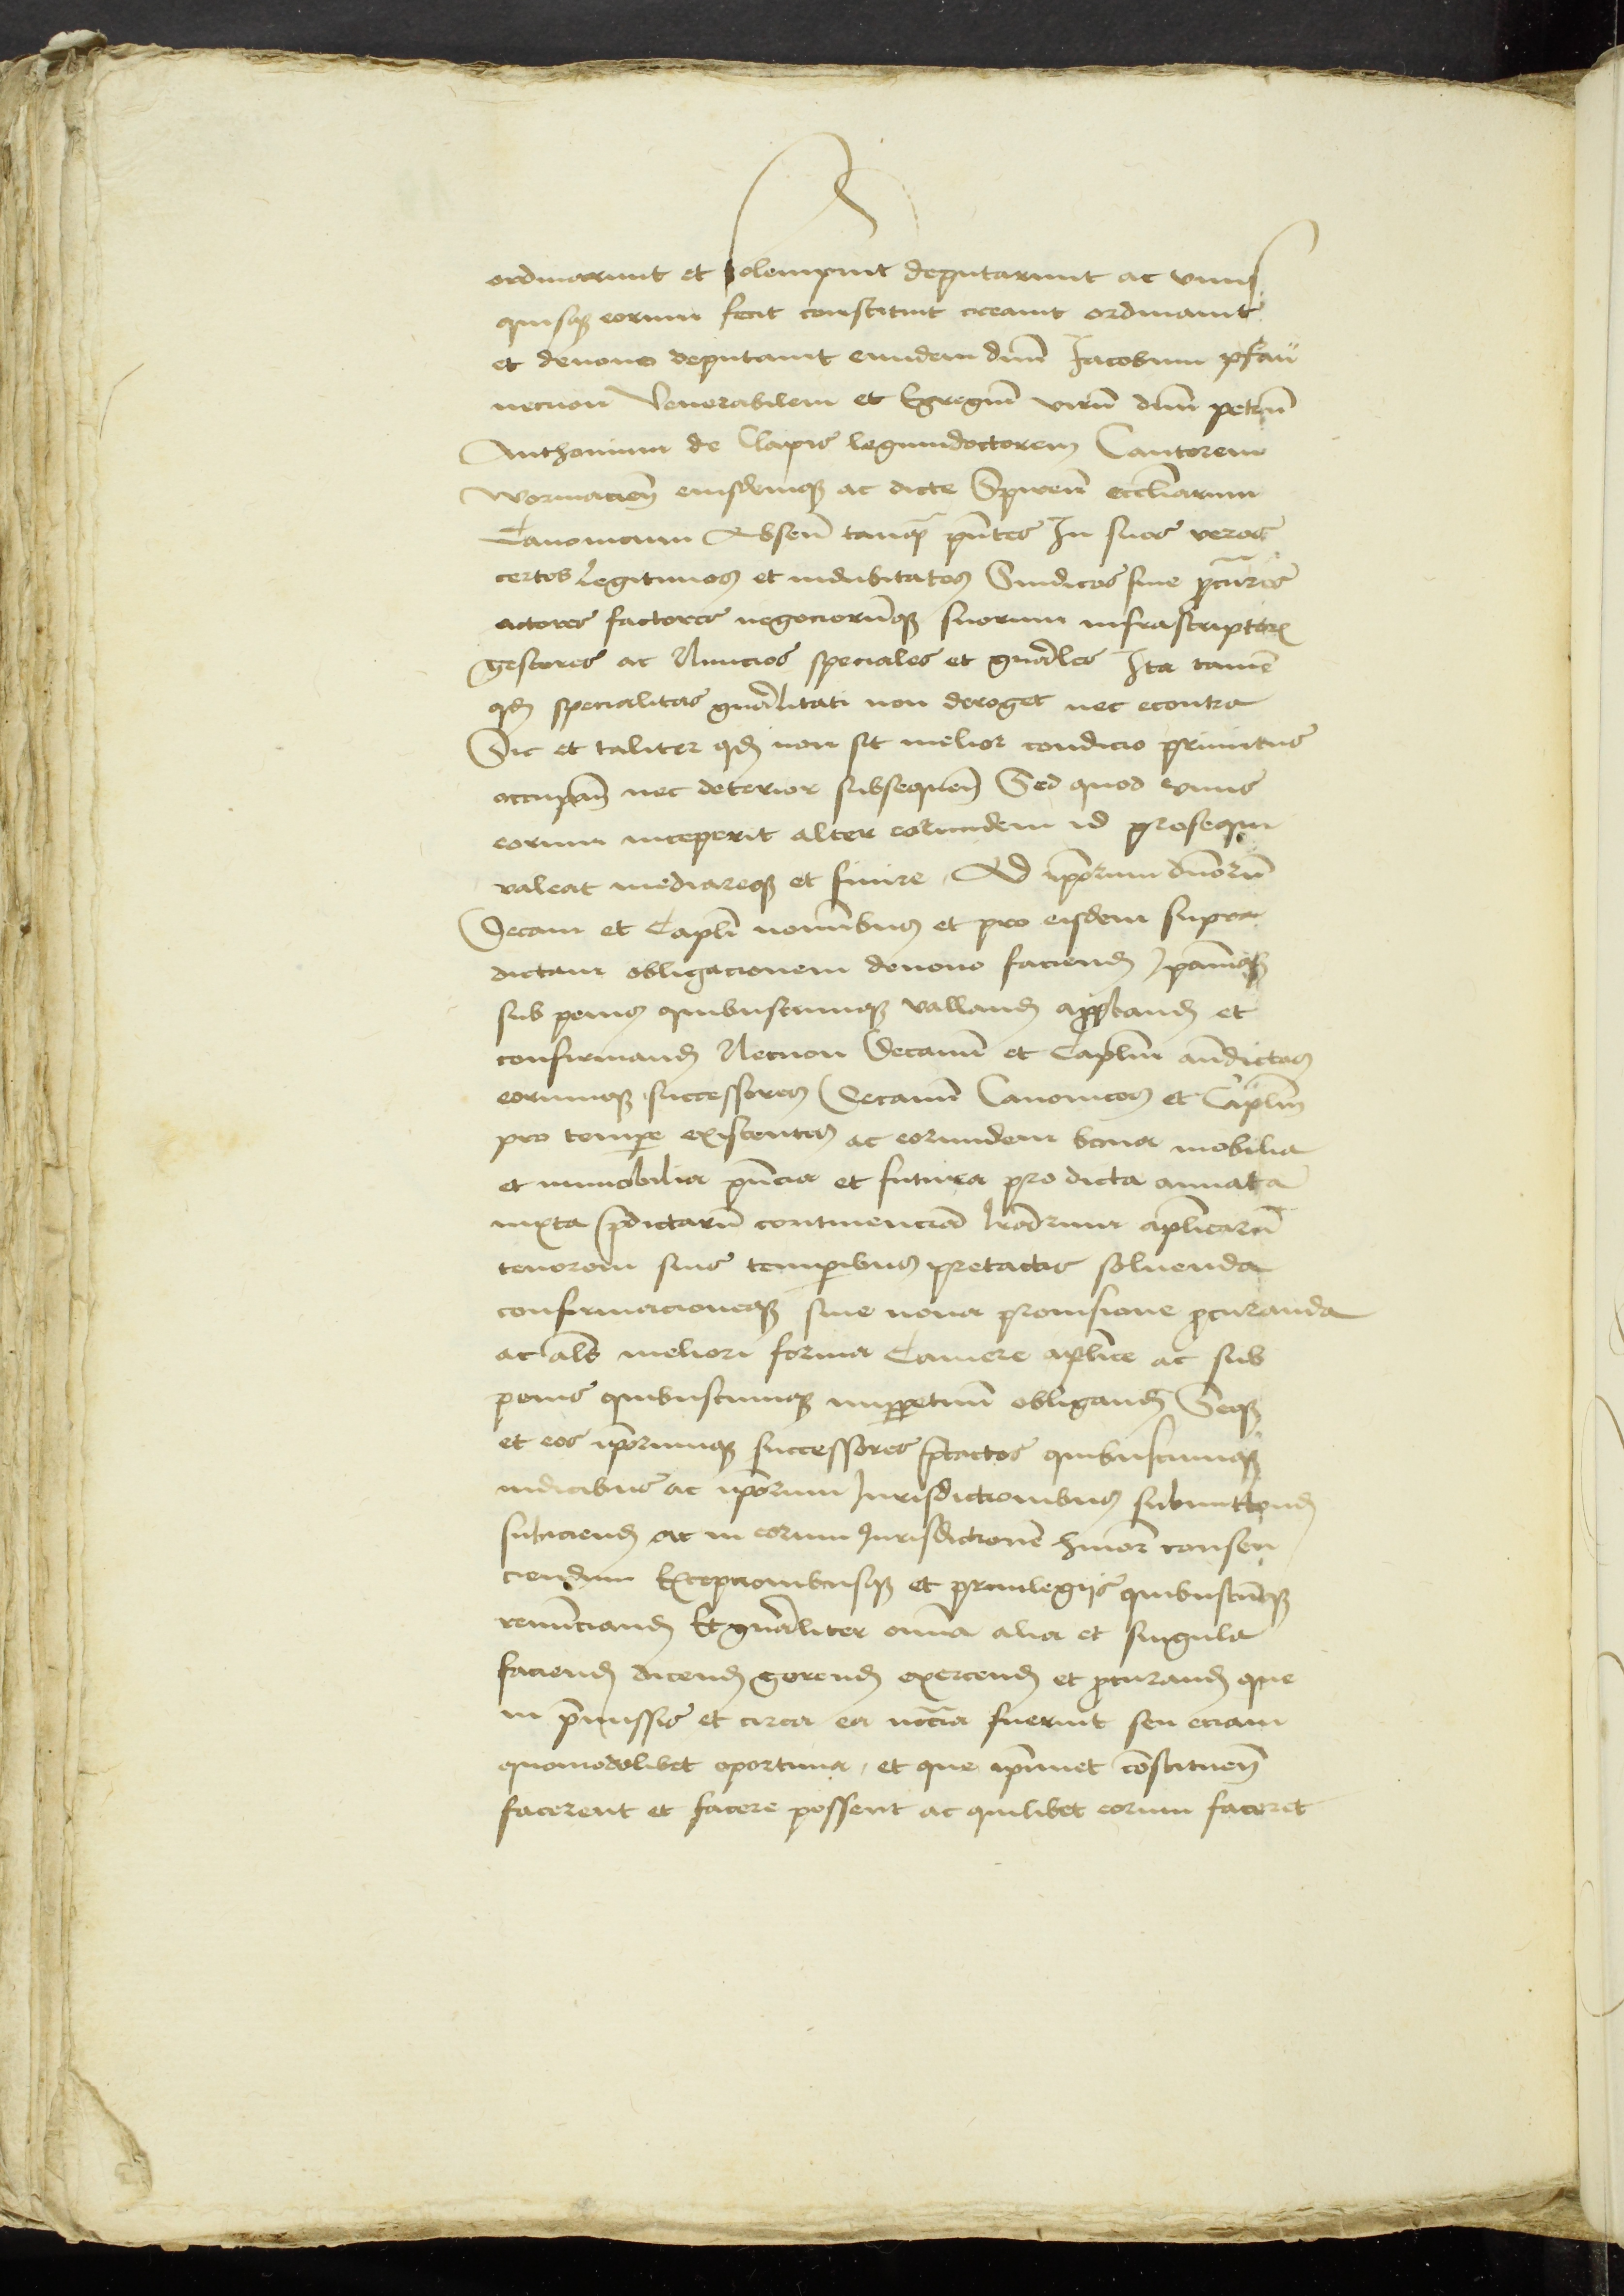 ordinarunt et solempnit deputarunt ac vnus
quisqȝ eorum fecit constituit creauit ordinauit
et denouo deputauit eundem dnm̄ Jacobum pfaü
necnon Venerabilem et Egregiū virū dnm̄ petrū
Anthonium de Clapis legumdoctorem Cantorem
wormacien̄ eiusdemqȝ ac dicte Spiren̄ ecclīarum
Canonicum Absen̄ tanqȝ pn̄tes In suos veros
certos legitimos et indubitatos Sindicos siue ꝓcur̄es
actores factores negociorūqȝ suorum infrascriptorꝝ
gestores ac Nuncios speciales et gn̄ales Ita tamē
qd̄ specialitas gn̄alitati non deroget nec econtra
Sic et taliter qd̄ non sit melior condicio primitus
occupan̄ nec deterior subsequen̄ Sed quod vnus
eorum inceperit alter eorundem id prosequi
valeat mediareqȝ et finire Ad ip̄orum dn̄orū
Decani et Caplī nomībus et pro eisdem supra
dictam obligacionem denouo faciend̄ Ipamqȝ
sub penis quibuscumqȝ valland̄ approband̄ et
confirmand̄ Necnon Decanū et Caplm̄ an̄dictos
eorumqȝ successores Decanū Canonicos et Caplm̄
pro tempe existentes ac eorundem bona mobilia
et immobilia pn̄cia et futura pro dicta annata
iuxta p̄dictarū continenciā lr̄arum aplīcarū
tenorem suis temporibus pretactis soluenda
confirmacioneqȝ siue noua prouisione ꝓcuranda
ac als̄ meliori forma Camere aplīce ac sub
penis quibuscumqȝ imꝑpetuū obligand̄ Seqȝ
et eos ip̄orumqȝ successores p̄tactos quibuscumqȝ
iudicibus ac ip̄orum Jurisdictionibus submittend̄
subiciend̄ ac in eorum Jurisdictionē hmōi consen
ciendum Excepcionibusqȝ et priuilegijs quibuscūqȝ
renūciand̄ Et gn̄aliter omīa alia et singula
faciend̄ dicend̄ gerend̄ exercend̄ et ꝓcurand̄ que
in p̄missis et circa ea nccīa fuerint seu eciam
quomodolibet oportuna, et que ip̄imet cōstituen̄
facerent et facere possent ac quilibet eorum faceret